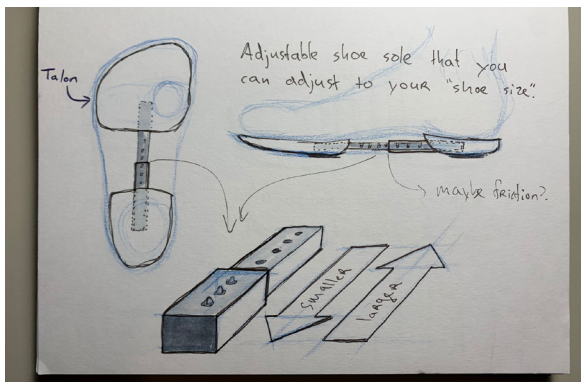 Talon
Adjustable shoe sole that you
can adjust to your "shoe size".
maybe friction?
smaller
larger